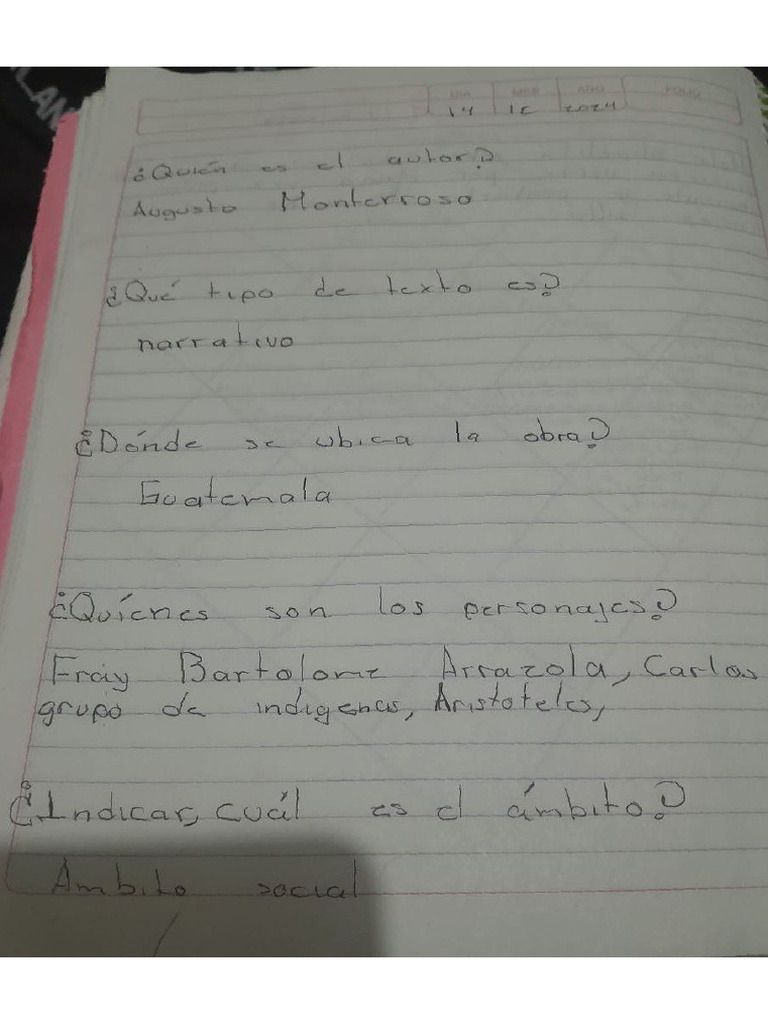 LAN
DIA MES AÑO FOLIO
14 10 2024
¿Quién es el autor?
Augusto Monterroso
¿Qué tipo de texto es?
narrativo
¿Dónde se ubica la obra?
Guatemala
¿Quíenes son los personajes?
Fray Bartolome Arrazola, Carlos
grupo de indigenas, Aristoteles,
¿Indicar, cuál es el ámbito?
Ambito social